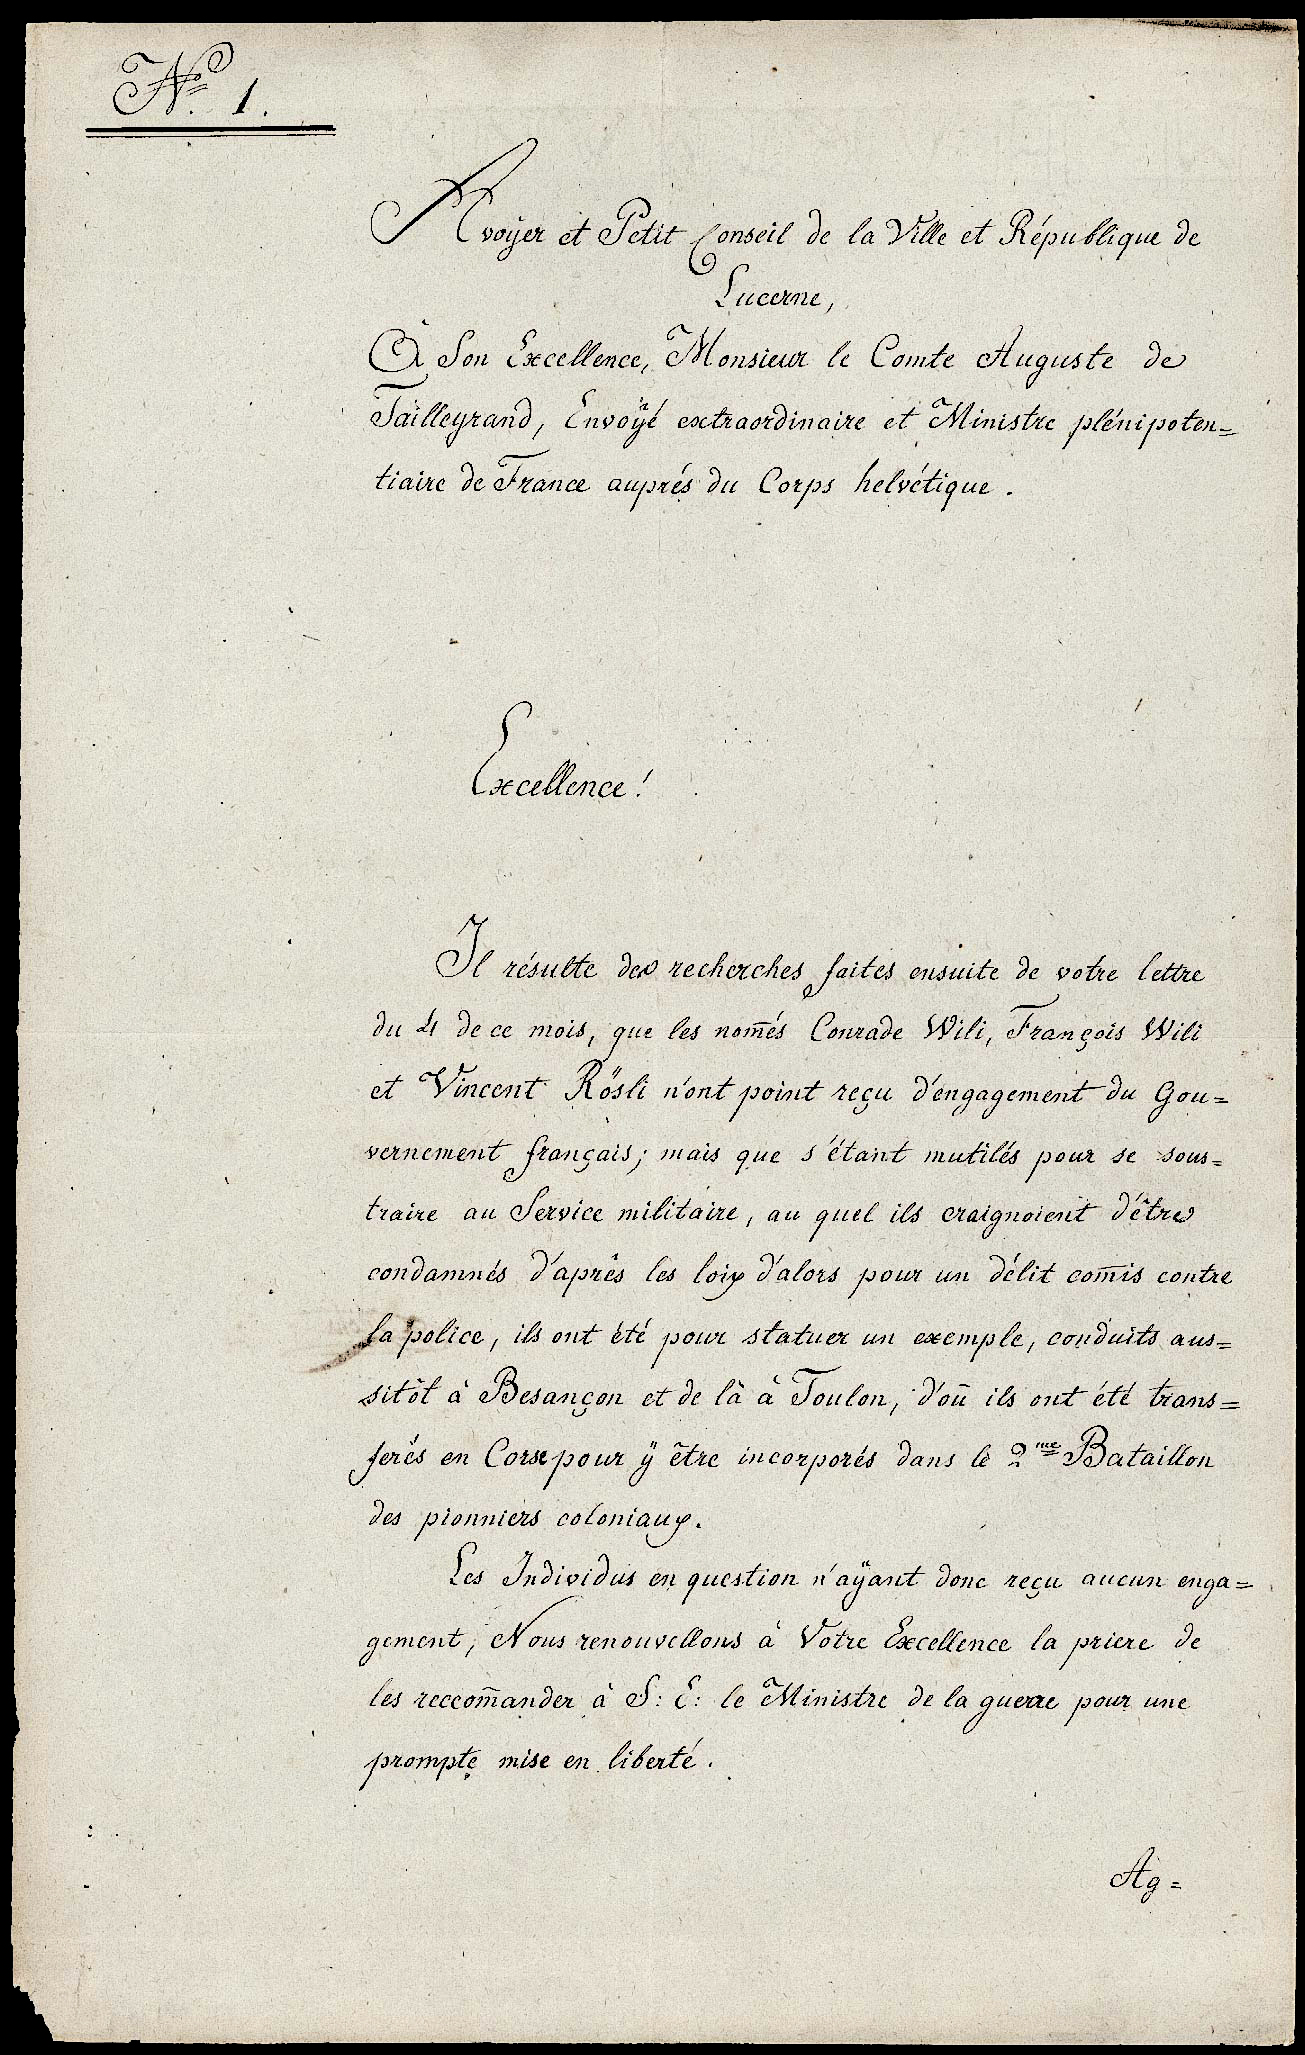 No. 1.
Avoyer et Petit Conseil de la Ville et République de
Lucerne,
À Son Excellence, Monsieur le Comte Auguste de
Tailleyrand, Envoÿé extraordinaire et Ministre plénipoten=
tiaire de France auprés du Corps helvétique.
Excellence!
Il résulte des recherches faites ensuite de votre lettre
du 4 de ce mois, que les nom̄és Conrade Wili, François Wili
et Vincent Rösli n'ont point reçu d'engagement du Gou=
vernement français; mais que s'étant mutilés pour se sous=
traire au Service militaire, au quel ils craignoient d'être
condamnés d'après les loix d'alors pour un délit com̄is contre
la police, ils ont été pour statuer un exemple, conduits aus=
sitôt à Besançon et de là à Toulon, d'où ils ont été trans=
ferés en Corse pour ÿ être incorporés dans le 2me Bataillon
des pionniers coloniaux.
Les Individus en question n'aÿant donc reçu aucun enga=
gement, Nous renouvellons à Votre Excellence la priere de
les reccom̄ander à S: E: le Ministre de la guerre pour une
prompte mise en liberté.
Ag=